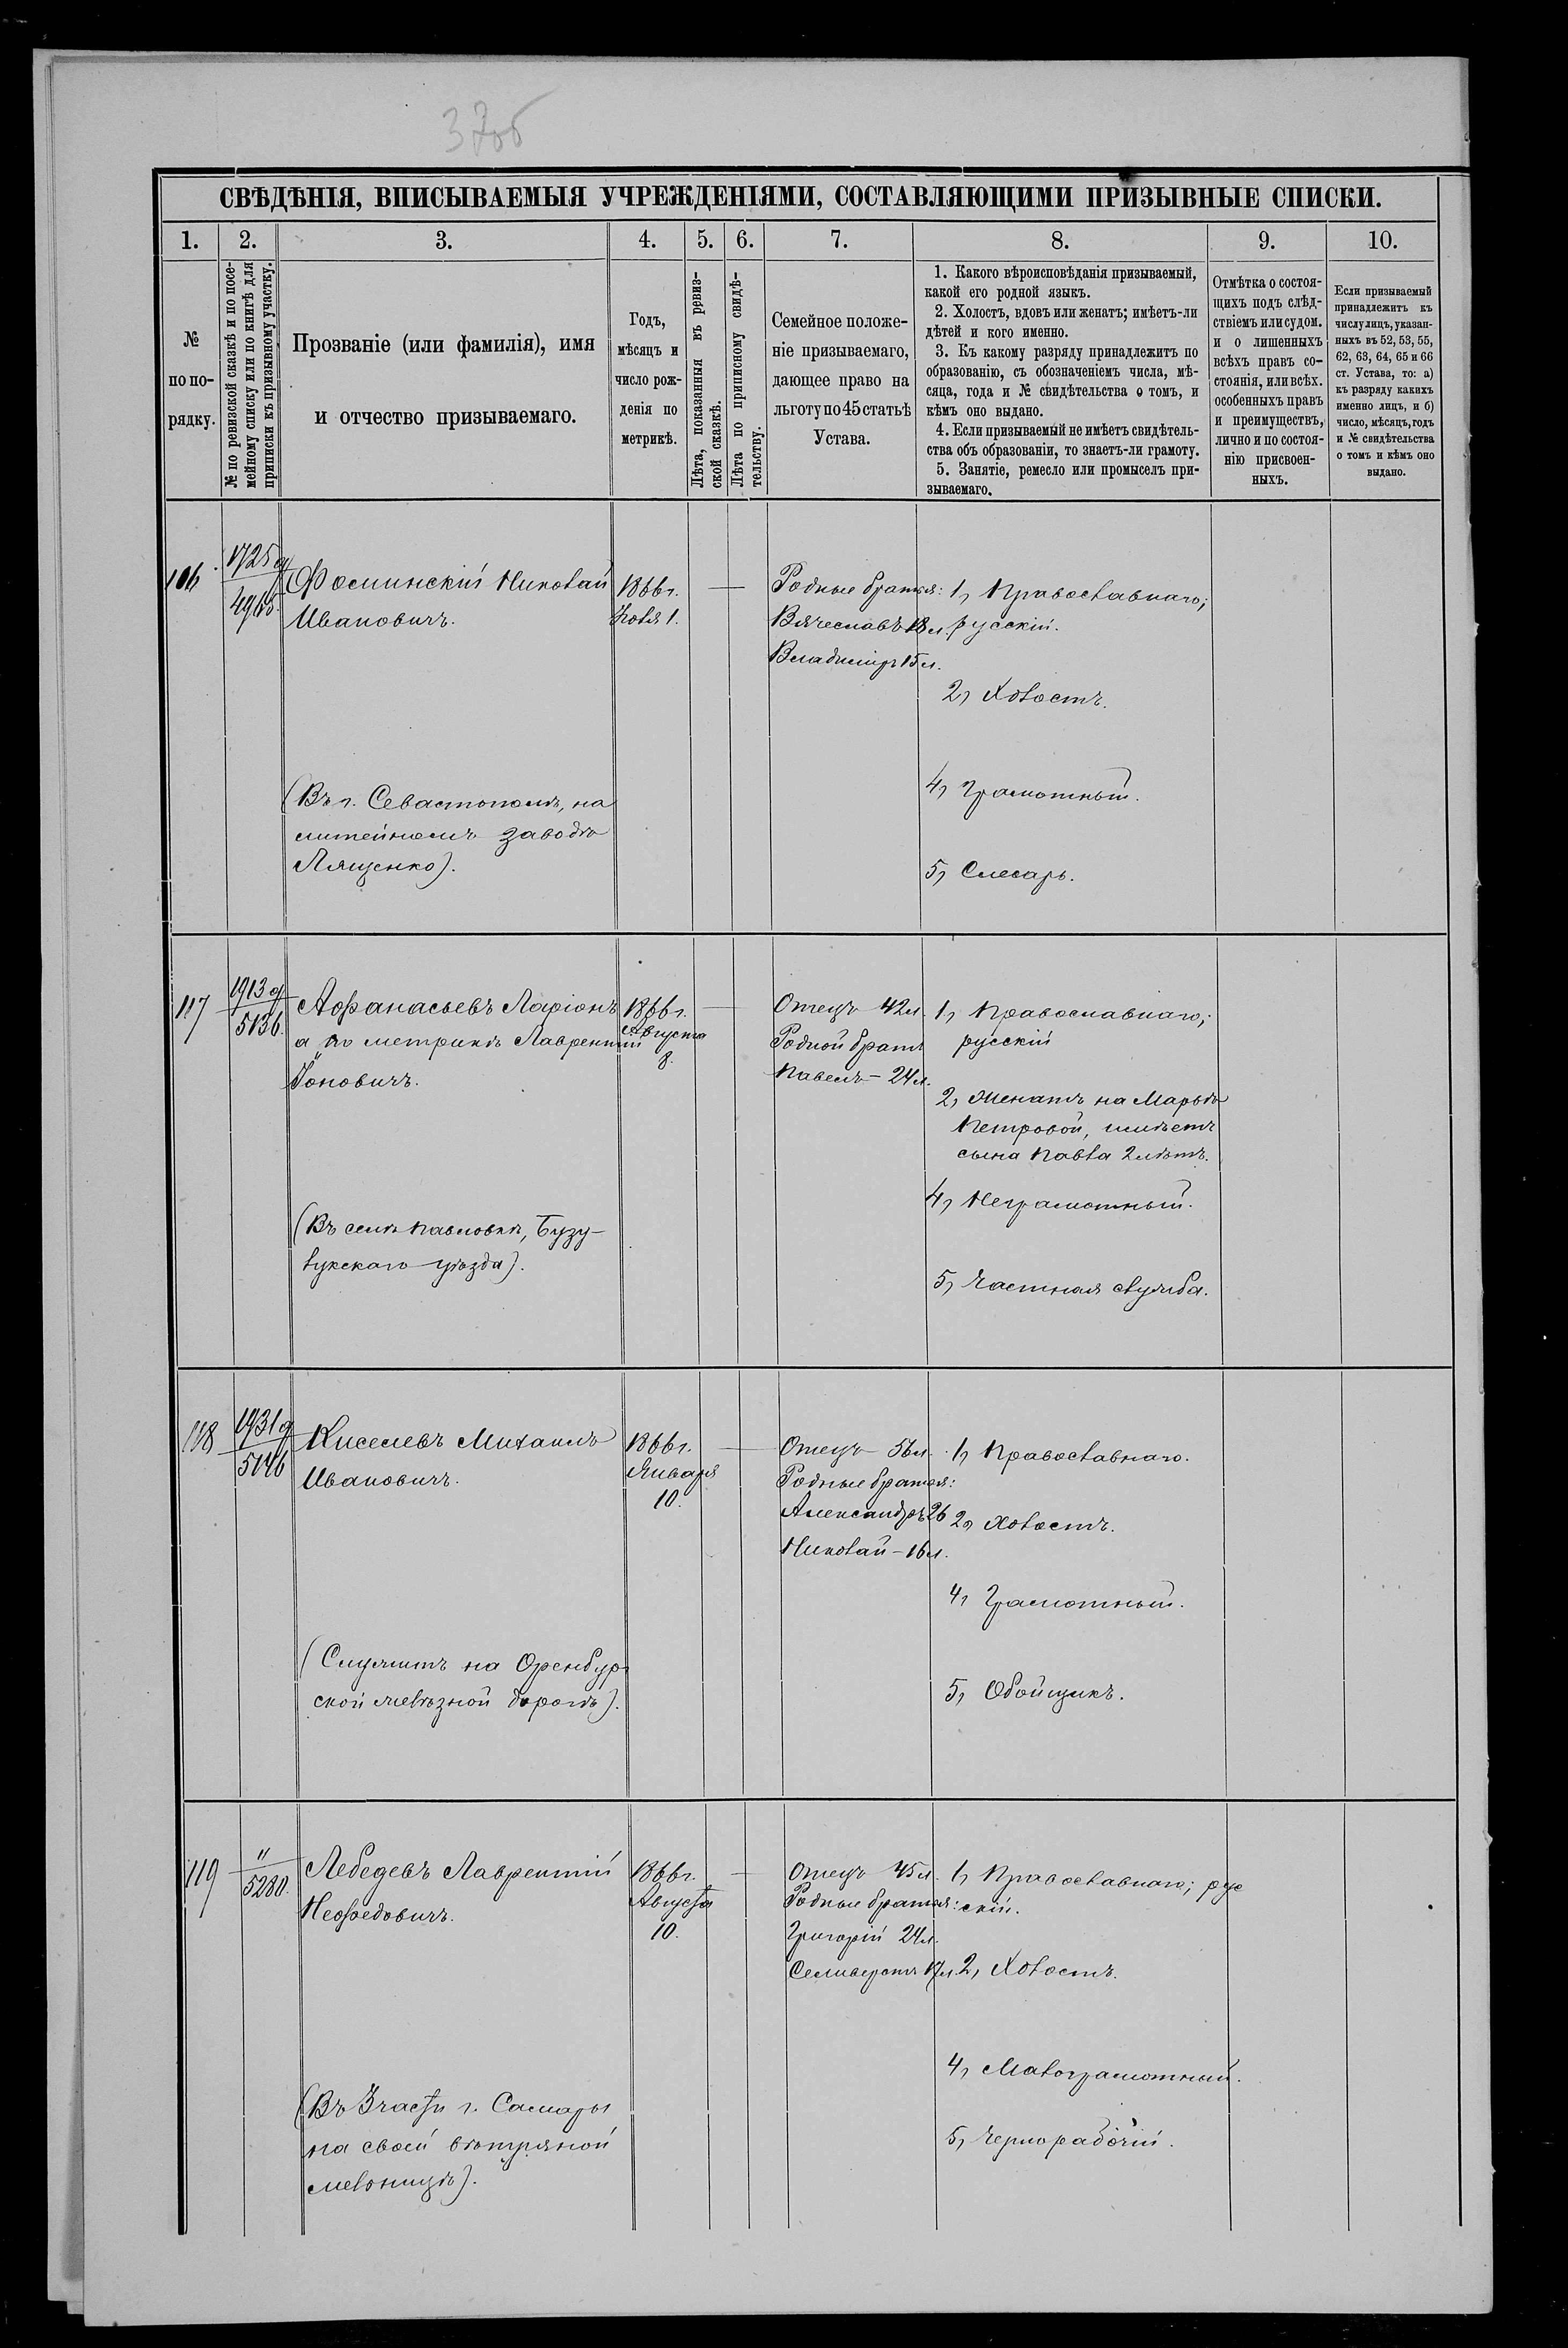 37об
СВѢДѢНІЯ, ВПИСЫВАЕМЫЯ УЧРЕЖДЕНІЯМИ, СОСТАВЛЯЮЩИМИ ПРИЗЫВНЫЕ СПИСКИ.
1.
2.
3.
4.
5.
6.
7.
8.
9.
10.
№
по по-
рядку.
№ по ревизской сказкѣ и по посе-
мейному списку или по книгѣ для
приписки къ призывному участку.
Прозваніе (или фамилія), имя
и отчество призываемаго.
Годъ,
мѣсяцъ и
число рож-
денія по
метрикѣ.
Лѣта, показанныя въ ревиз-
ской сказкѣ.
Лѣта по приписному свидѣ-
тельству.
Семейное положе-
ніе призываемаго,
дающее право на
льготу по 45 статьѣ
Устава.
1. Какого вѣроисповѣданія призываемый,
какой его родной языкъ.
2. Холостъ, вдовъ или женатъ; имѣетъ-ли
дѣтей и кого именно.
3. Къ какому разряду принадлежитъ по
образованію, съ обозначеніемъ числа, мѣ-
сяца, года и № свидѣтельства о томъ, и
кѣмъ оно выдано.
4. Если призываемый не имѣетъ свидѣтель-
ства объ образованіи, то знаетъ-ли грамоту.
5. Занятіе, ремесло или промыселъ при-
зываемаго.
Отмѣтка о состоя-
щихъ подъ слѣд-
ствіемъ или судом.
и о лишенныхъ
всѣхъ правъ со-
стоянія, или всѣх.
особенныхъ правъ
и преимуществъ,
лично и по состоя-
нію присвоен-
ныхъ.
Если призываемый
принадлежитъ къ
числу лицъ, указан-
ныхъ въ 52, 53, 55,
62, 63, 64, 65 и 66
ст. Устава, то: а)
къ разряду какихъ
именно лицъ, и б)
число, мѣсяцъ, годъ
и № свидѣтельства
о томъ и кѣмъ оно
выдано.
Фоминскій Николай
Ивановичъ.
1866г.
Іюля 1.
Родные братья:
Вячеславъ 18 л.
Владиміръ 15 л.
1, Православнаго;
русскій.
2, Холостъ.
4, Грамотный.
5, Слесарь.
(Въ г. Севастополѣ, на
литейномъ заводѣ
Лященко).
117
1913 д
5136.
Афанасьевъ Ларіонъ
а по метрикѣ Лаврентій
Іоновичъ.
1866г.
Августа
8.
Отецъ 42 л.
Родной братъ
Павелъ – 24 л.
1, Православнаго;
русскій
2, Женатъ на Марьѣ
Петровой, имѣетъ
сына Павла 2 лѣтъ.
4, Неграмотный.
5, Частная служба.
(Въ селѣ Павловкѣ, Бузу-
лукскаго уѣзда).
118
1931 д
5146
Киселевъ Михаилъ
Ивановичъ.
1866г.
Января
10.
Отецъ – 56 л.
Родные братья:
Александръ 26
Николай – 16 л.
1, Православнаго.
2, Холостъ.
4, Грамотный.
5, Обойщикъ.
(Служитъ на Оренбур-
ской желѣзной дорогѣ).
119
"
5280.
Лебедевъ Лаврентій
Нефедовичъ.
1866г.
Августа
10.
Отецъ 45 л.
Родные братья:
Григорій 24 л.
Селиверстъ 17 л.
1, Православнаго; рус
скій.
2, Холостъ.
4, Малограмотный.
5, Чернорабочій.
(Въ 3 части г. Самары
на своей вѣтряной
мельницѣ).